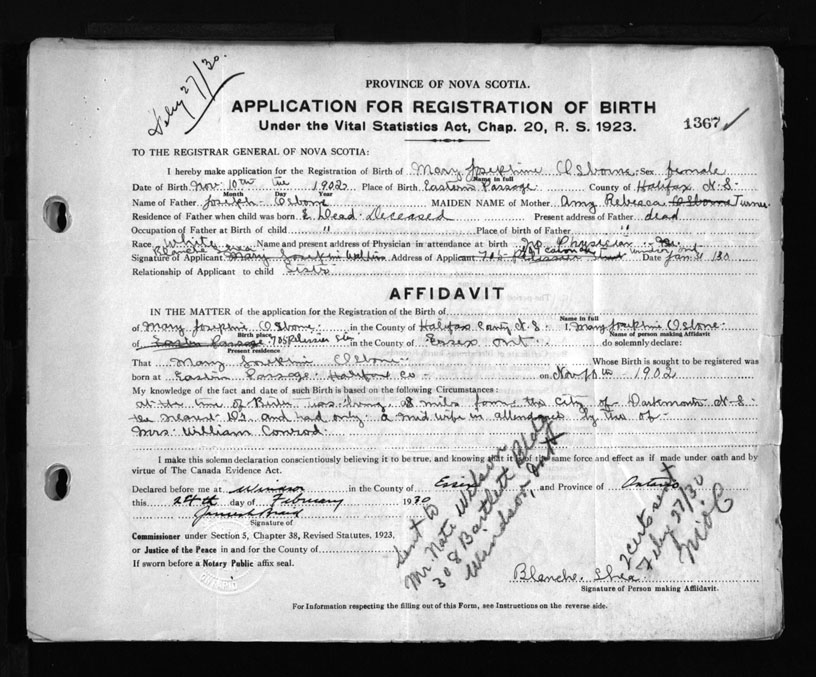 Feby 27/30.
PROVINCE OF NOVA SCOTIA.
APPLICATION FOR REGISTRATION OF BIRTH
1367
Under the Vital Statistics Act, Chap. 20, R. S. 1923.
TO THE REGISTRAR GENERAL OF NOVA SCOTIA:
I hereby make application for the Registration of Birth of Mary Josephine Osborne Sex female
Name in full
Date of Birth Nov. 10th 1902 Place of Birth Eastern Passage County of Halifax N.S.
Month Day Year
Name of Father Joseph Osborne MAIDEN NAME of Mother Amy Rebecca Osborne Turner
Residence of Father when child was born Dead Deceased Present address of Father dead
Occupation of Father at Birth of child " Place of birth of Father "
Race White Name and present address of Physician in attendance at birth no Physician
Blanche Shea
Signature of Applicant Mary Address of Applicant Date Jan 30
Relationship of Applicant to child Sister
AFFIDAVIT
IN THE MATTER of the application for the Registration of the Birth of
Name in full
of Mary Josephine Osborne in the County of Halifax County N.S. I, Mary Josephine Osborne
Birth place Name of person making Affidavit
of Eastern Passage in the County of Essex Ont do solemnly declare:
Present residence
That Mary Josephine Osborne Whose Birth is sought to be registered was
born at Eastern Passage Halifax Co on Nov 10th 1902
My knowledge of the fact and date of such Birth is based on the following Circumstances:
at the time of Birth was living 8 miles from the City of Dartmouth N.S.
the nearest Dr and had only a mid wife in attendance by the of
Mrs. William Conrod
I make this solemn declaration conscientiously believing it to be true, and knowing that it is of the same force and effect as if made under oath and by
virtue of The Canada Evidence Act.
Declared before me at Windsor in the County of Essex and Province of Ontario
this 24th day of February 1930
Signature of
Commissioner under Section 5, Chapter 38, Revised Statutes, 1923,
or Justice of the Peace in and for the County of
If sworn before a Notary Public affix seal.
Sent to
Mr Nate Wilson
308 Bartlett Bldg
Windsor, Ont
2 certs sent
Feby 27/30
Blanche Shea
Signature of Person making Affidavit.
For Information respecting the filling out of this Form, see Instructions on the reverse side.